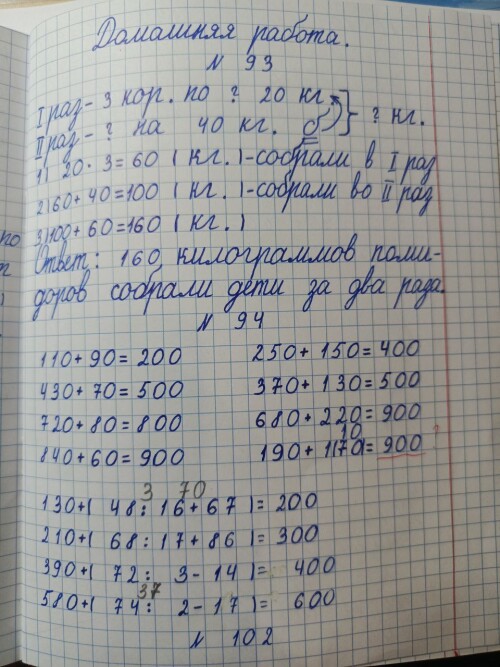 Домашняя работа.
N 93
I раз - 3 кор. по ? 20 кг.
II раз - ? на 40 кг. б } ? кг.
1) 20 · 3 = 60 ( кг. ) - собрали в I раз
2) 60 + 40 = 100 ( кг. ) - собрали во II раз
3) 100 + 60 = 160 ( кг. )
Ответ: 160 килограммов поми-
доров собрали дети за два раза.
N 94
110 + 90 = 200 250 + 150 = 400
430 + 70 = 500 370 + 130 = 500
720 + 80 = 800 680 + 220 = 900
10
840 + 60 = 900 190 + 1170 = 900 ?
3 70
130 + ( 48 : 16 + 67 ) = 200
210 + ( 68 : 17 + 86 ) = 300
390 + ( 72 : 3 - 14 ) = 400
37
580 + ( 74 : 2 - 17 ) = 600
N 102